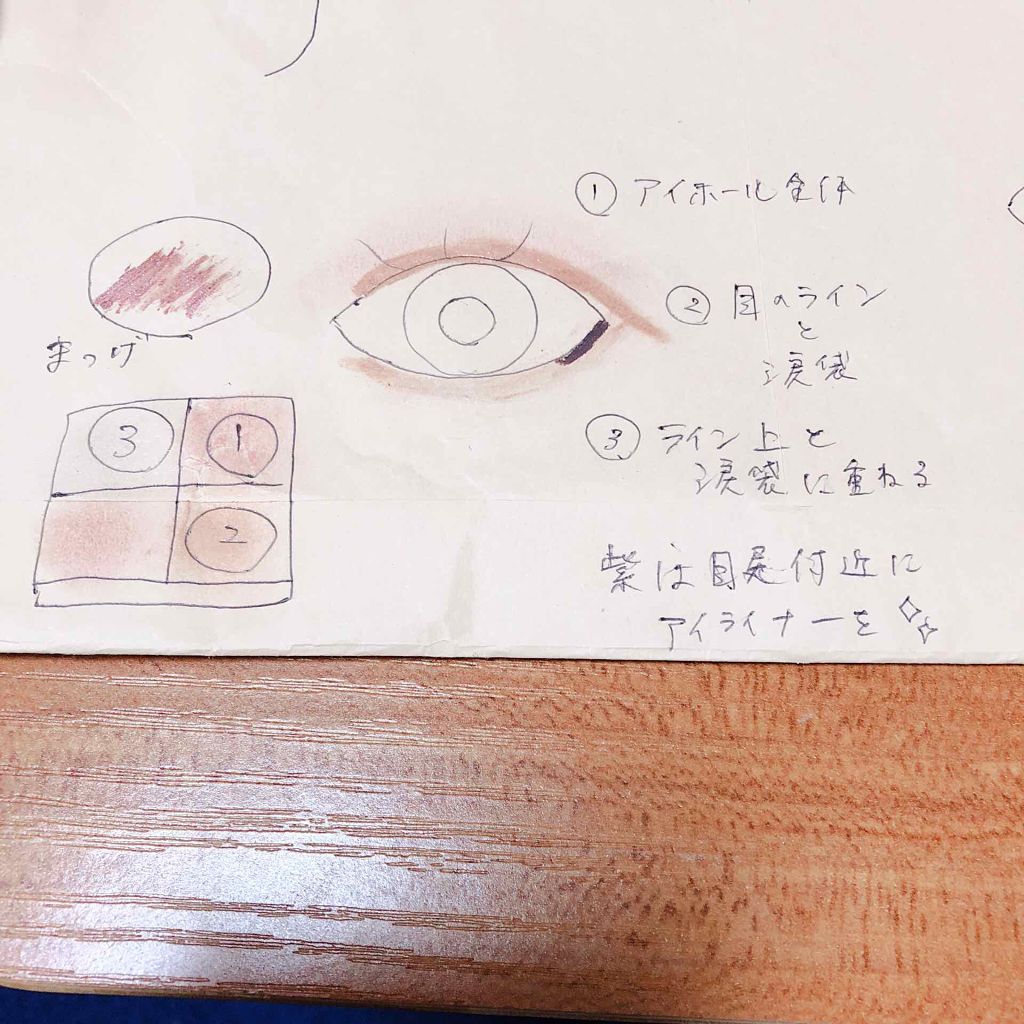 ① アイホール全体
② 目のライン
と
涙袋
まつげ
③ ①
②
③ ライン上と
涙袋に重ねる
紫は目尾付近に
アイライナーを